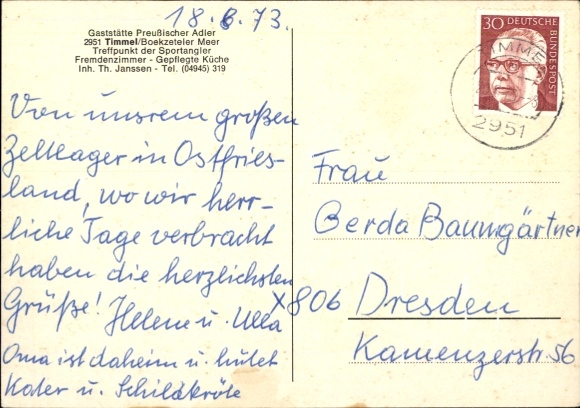 18.6.73.
Gaststätte Preußischer Adler
2951 Timmel/Boekzeteler Meer
Treffpunkt der Sportangler
Fremdenzimmer - Gepflegte Küche
Inh. Th. Janssen - Tel. (04945) 319
Von unsrem großen
Zeltlager in Ostfries-
land, wo wir herr-
liche Tage verbracht
haben die herzlichsten
Grüße! Helene u. Ulla
Oma ist daheim u. hütet
Kater u. Schildkröte
30
DEUTSCHE BUNDESPOST
TIMMEL
2951
Frau
Gerda Baumgärtner
X806 Dresden
Kamenzerstr 56